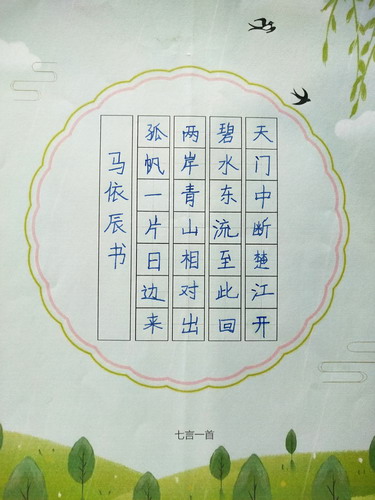 天门中断楚江开
碧水东流至此回
两岸青山相对出
孤帆一片日边来
马依辰书
七言一首